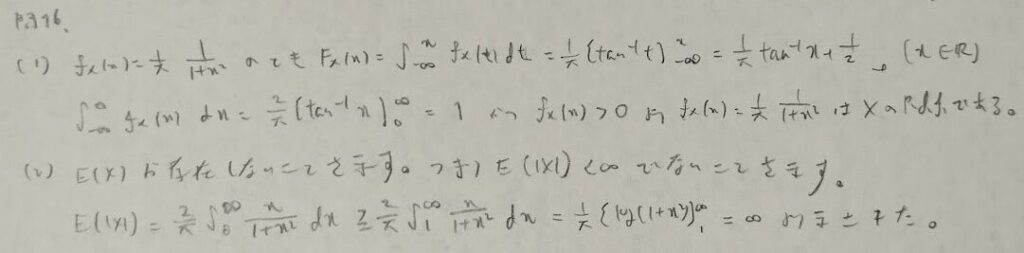 P.376.
(1) fx(x)=1/π 1/(1+x²) のとき Fx(x)=∫_{-∞}^{x} fx(t)dt = 1/π [tan⁻¹t]_{-∞}^{x} = 1/π tan⁻¹x+1/2。 (x∈R)
∫_{-∞}^{∞} fx(x) dx = 2/π [tan⁻¹x]_{0}^{∞} = 1 かつ fx(x)>0 より fx(x)=1/π 1/(1+x²) は Xのp.d.f.である。
(2) E(X)が存在しないことを示す。つまり E(|X|)<∞ でないことを示す。
E(|X|) = 2/π ∫_{0}^{∞} x/(1+x²) dx ≧ 2/π ∫_{1}^{∞} x/(1+x²) dx = 1/π [log(1+x²)]_{1}^{∞} = ∞ より示された。